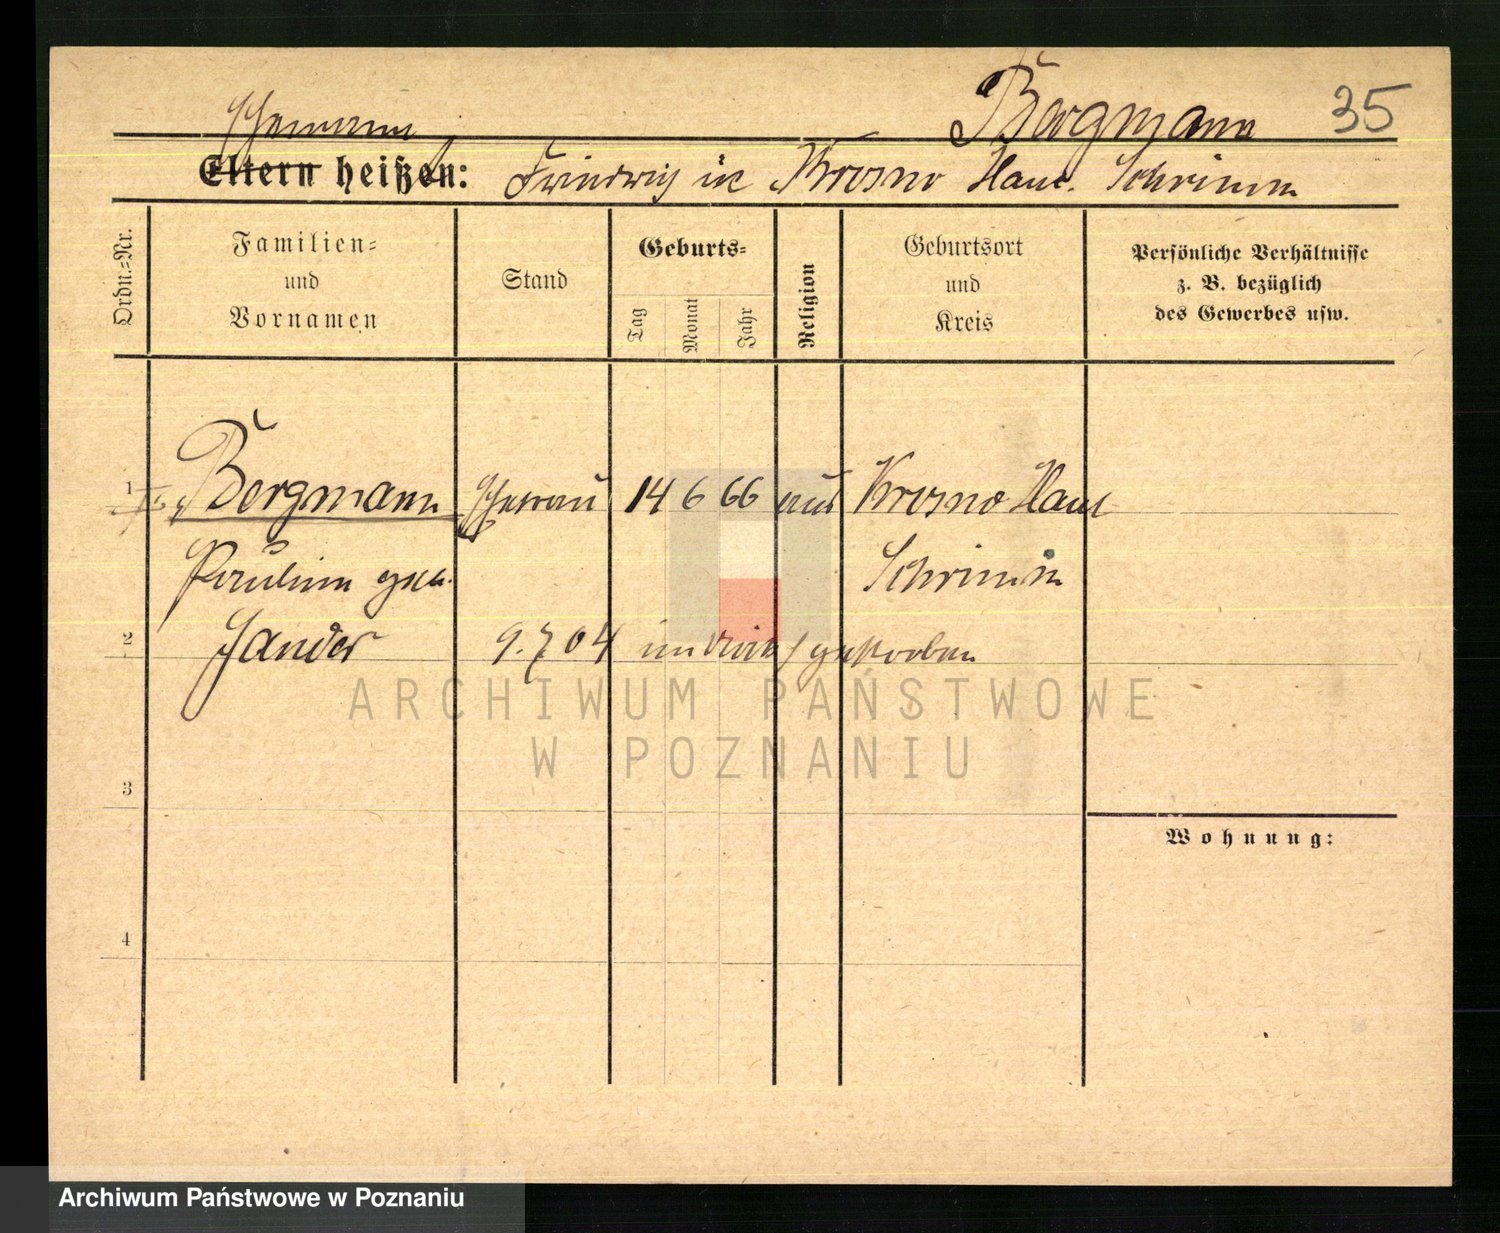 Bergmann 35
Ehemann
Eltern heißen: Friedrich in Krosno Haul. Schrimm
Ordn.=Nr.
Familien=
und
Vornamen
Stand
Geburts=
Tag
Monat
Jahr
Religion
Geburtsort
und
Kreis
Persönliche Verhältnisse
z. B. bezüglich
des Gewerbes usw.
1 Bergmann Ehefrau 14 6 66 Krosno Haul
Pauline geb. Schrimm
2 Jander 9. 7 04 gestorben
ARCHIWUM PAŃSTWOWE
W POZNANIU
3
Wohnung:
4
Archiwum Państwowe w Poznaniu